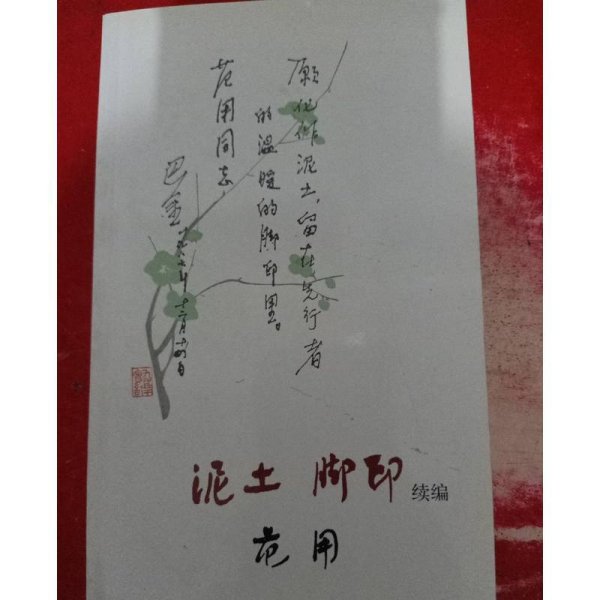 愿化作泥土，留在先行者
的温暖的脚印里。
范用同志
巴金
一九八七年十二月十四日
泥土 脚印 续编
范用